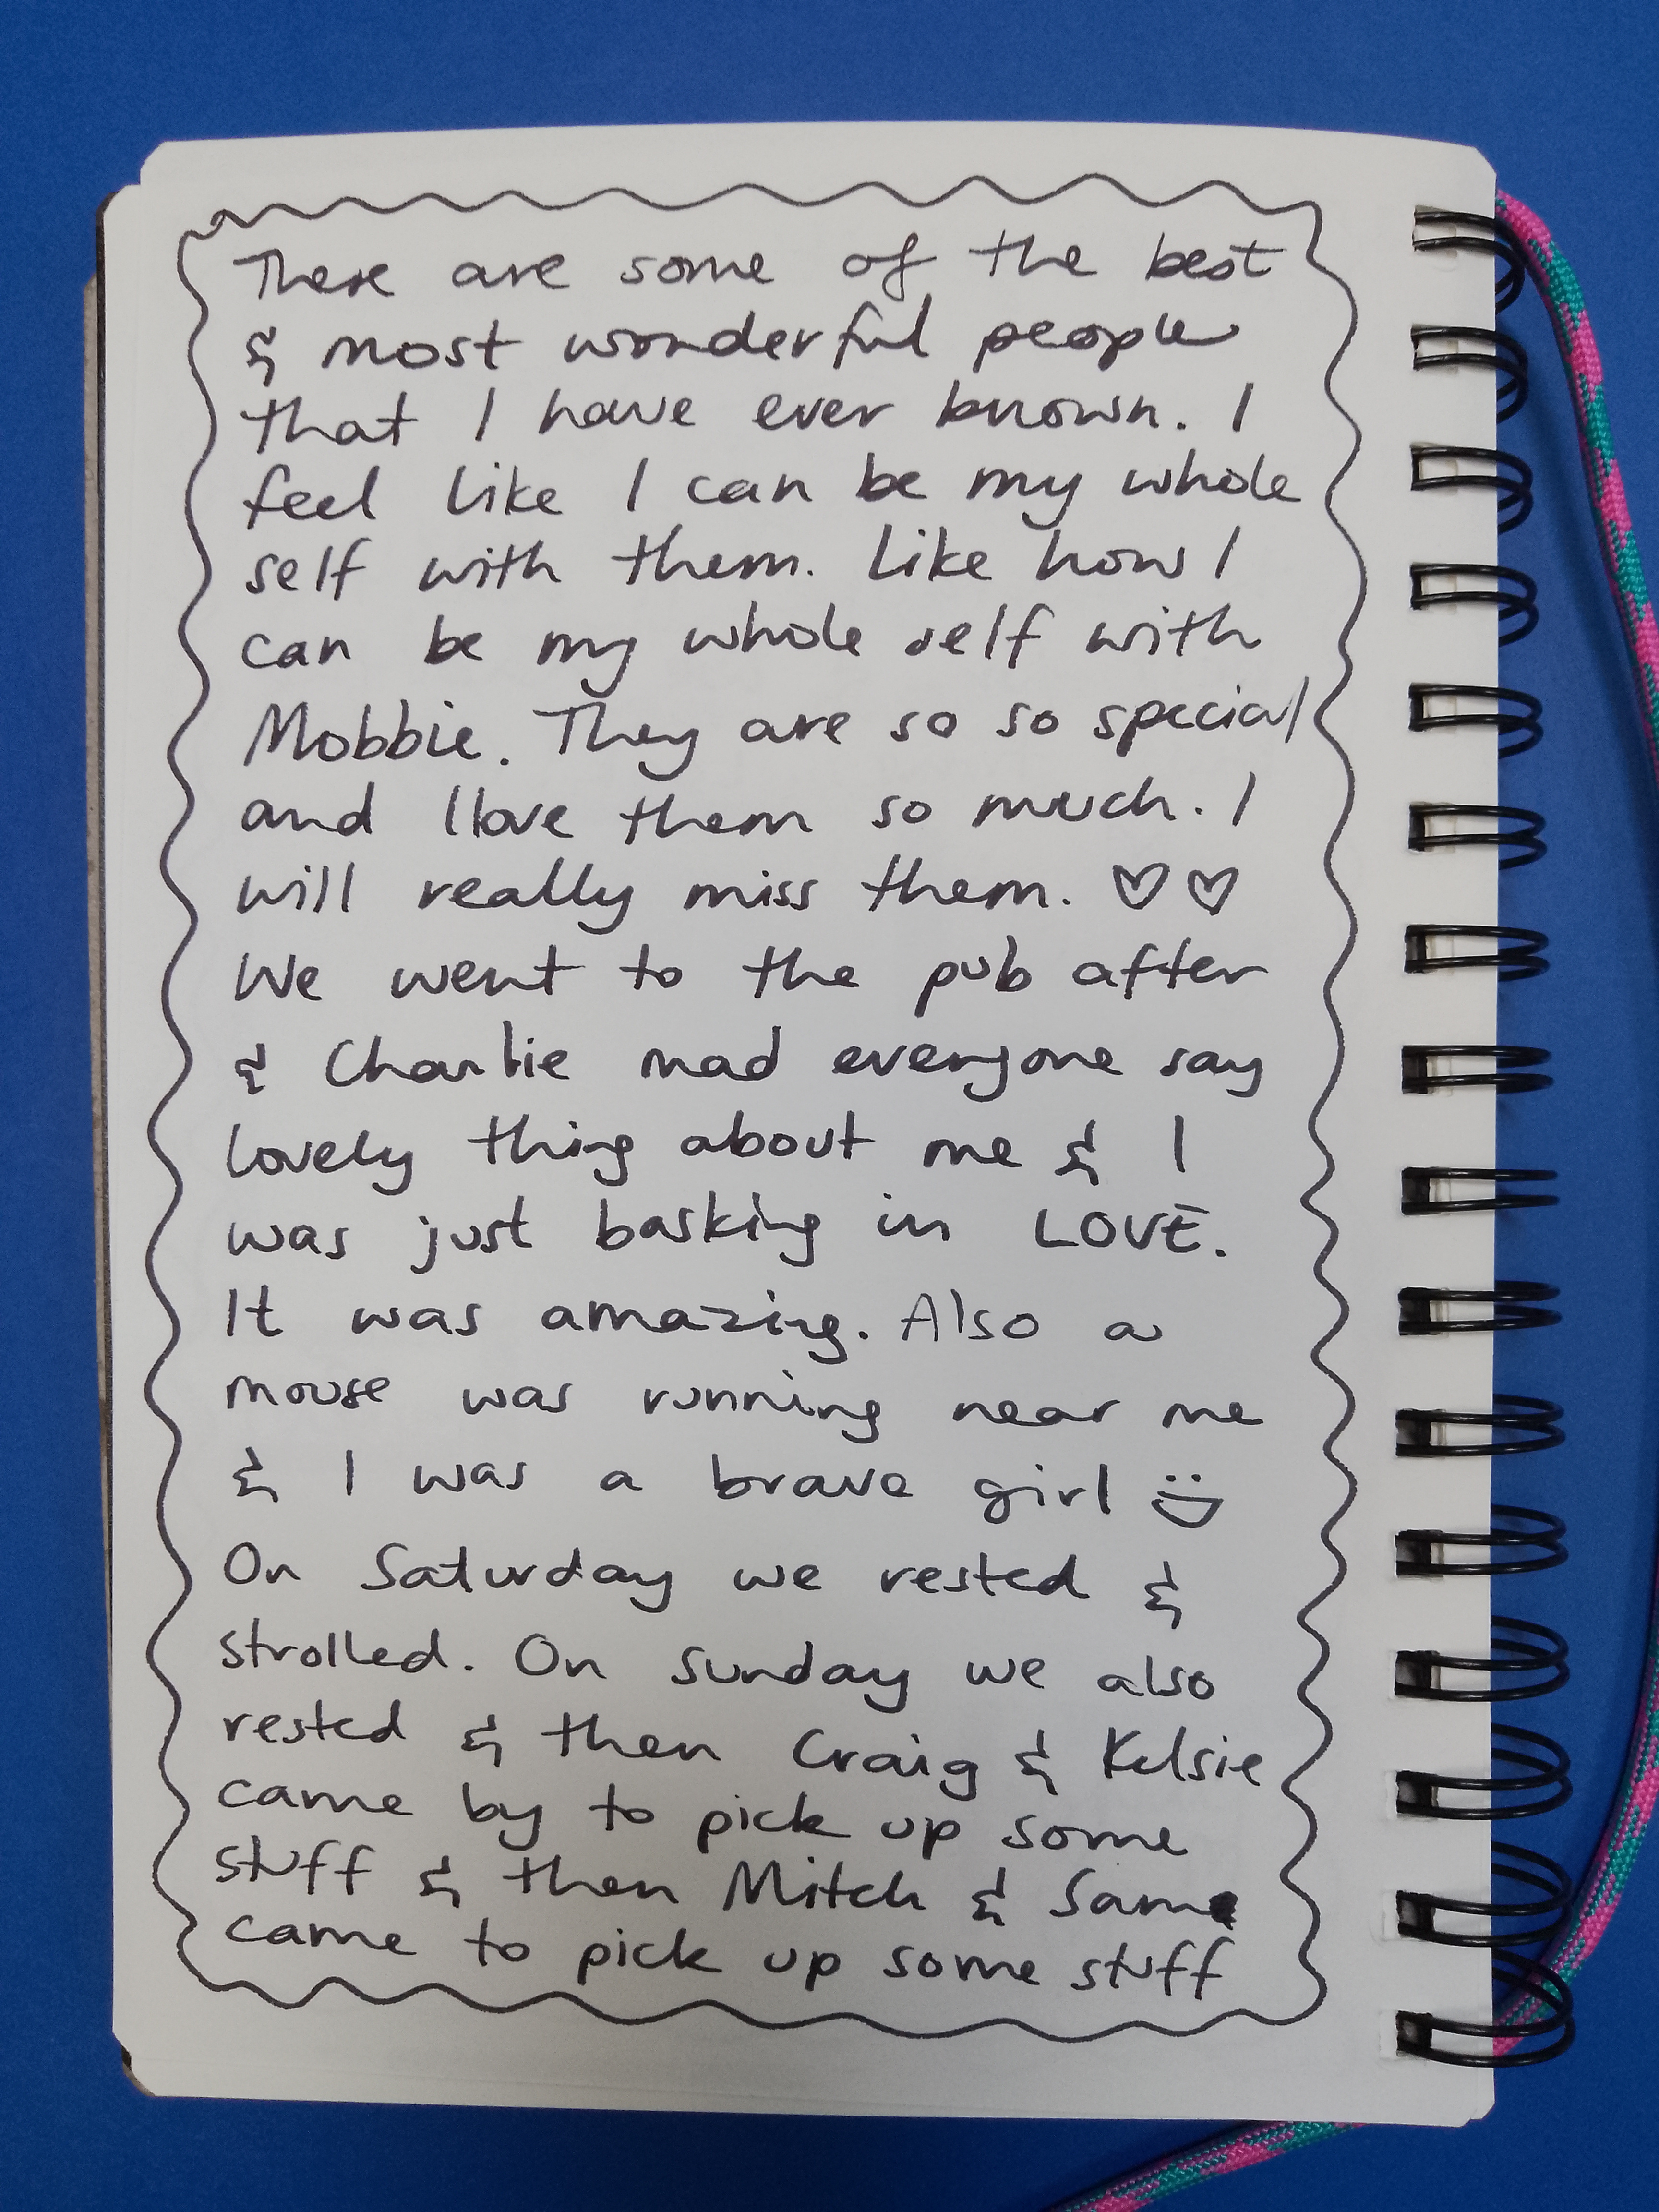 These are some of the best
& most wonderful people
that I have ever known. I
feel like I can be my whole
self with them. Like how I
can be my whole self with
Mobbie. They are so so special
and I love them so much. I
will really miss them. ♡♡
We went to the pub after
& Charlie mad everyone say
lovely thing about me & I
was just basking in LOVE.
It was amazing. Also a
mouse was running near me
& I was a brave girl
On Saturday we rested &
strolled. On Sunday we also
rested & then Craig & Kelsie
came by to pick up some
stuff & then Mitch & Sam
came to pick up some stuff